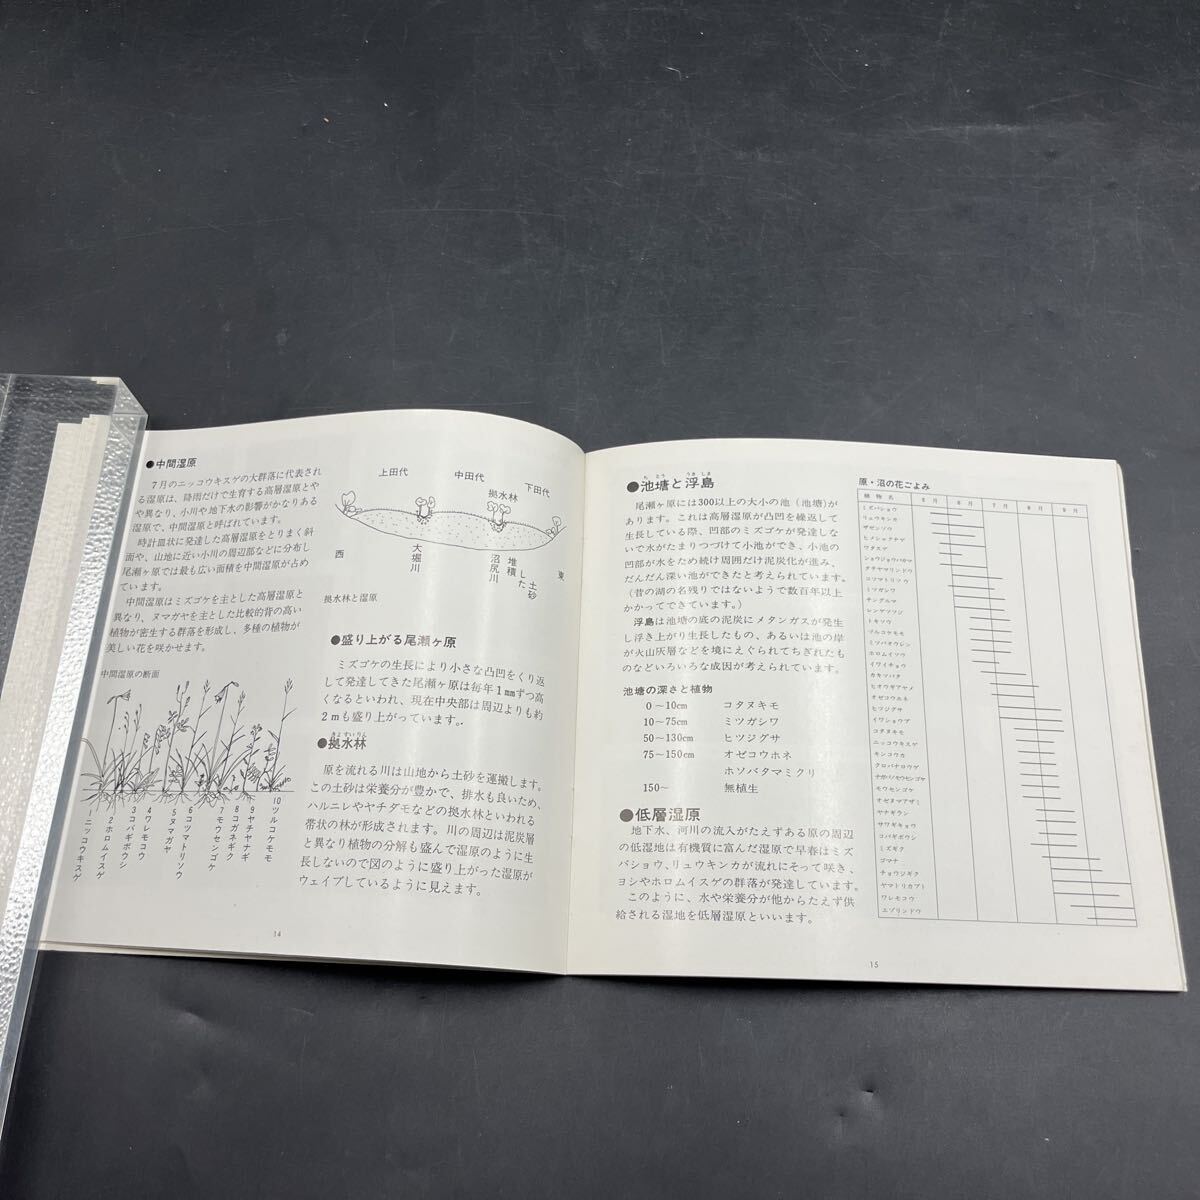 ●中間湿原
7月のニッコウキスゲの大群落に代表され
る湿原は、降雨だけで生育する高層湿原とや
や異なり、小川や地下水の影響がかなりある
湿原で、中間湿原と呼ばれています。
時計皿状に発達した高層湿原をとりまく斜
面や、山地に近い小川の周辺部などに分布し
尾瀬ヶ原では最も広い面積を中間湿原が占め
ています。
中間湿原はミズゴケを主とした高層湿原と
異なり、ヌマガヤを主とした比較的背の高い
植物が密生する群落を形成し、多種の植物が
美しい花を咲かせます。
中間湿原の断面
1ニッコウキスゲ
2ホロムイスゲ
3コバギボウシ
4ワレモコウ
5ヌマガヤ
6コツマトリソウ
7モウセンゴケ
8コガネギク
9ヤチヤナギ
10ツルコケモモ
上田代
中田代
下田代
拠水林
西
大堀川
沼尻川
堆積した土砂
東
拠水林と湿原
●盛り上がる尾瀬ヶ原
ミズゴケの生長により小さな凸凹をくり返
して発達してきた尾瀬ヶ原は毎年1mmずつ高
くなるといわれ、現在中央部は周辺よりも約
2mも盛り上がっています。
きょすいりん
●拠水林
原を流れる川は山地から土砂を運搬します。
この土砂は栄養分が豊かで、排水も良いため、
ハルニレやヤチダモなどの拠水林といわれる
帯状の林が形成されます。川の周辺は泥炭層
と異なり植物の分解も盛んで湿原のように生
長しないので図のように盛り上がった湿原が
ウェイブしているように見えます。
14
ちとう うきしま
●池塘と浮島
尾瀬ヶ原には300以上の大小の池（池塘）が
あります。これは高層湿原が凸凹を繰返して
生長している際、凹部のミズゴケが発達しな
いで水がたまりつづけて小池ができ、小池の
凹部が水をため続け周囲だけ泥炭化が進み、
だんだん深い池ができたと考えられています。
（昔の湖の名残りではないようで数百年以上
かかってできています。）
浮島は池塘の底の泥炭にメタンガスが発生
し浮き上がり生長したもの、あるいは池の岸
が火山灰層などを境にえぐられてちぎれたも
のなどいろいろな成因が考えられています。
池塘の深さと植物
0～10cm コタヌキモ
10～75cm ミツガシワ
50～130cm ヒツジグサ
75～150cm オゼコウホネ
ホソバタマミクリ
150～ 無植生
●低層湿原
地下水、河川の流入がたえずある原の周辺
の低湿地は有機質に富んだ湿原で早春はミズ
バショウ、リュウキンカが流れにそって咲き、
ヨシやホロムイスゲの群落が発達しています。
このように、水や栄養分が他からたえず供
給される湿地を低層湿原といいます。
原・沼の花ごよみ
植物名 5月 6月 7月 8月 9月
ミズバショウ
リュウキンカ
ザゼンソウ
ヒメシャクナゲ
ワタスゲ
ショウジョウバカマ
タテヤマリンドウ
コツマトリソウ
ミツガシワ
チングルマ
レンゲツツジ
トキソウ
ツルコケモモ
ミツバオウレン
ホロムイソウ
イワイチョウ
カキツバタ
ヒオウギアヤメ
オゼコウホネ
ヒツジグサ
イワショウブ
コタヌキモ
ニッコウキスゲ
キンコウカ
クロバナロウゲ
ナガバノモウセンゴケ
モウセンゴケ
オゼヌマアザミ
ヤナギラン
サワギキョウ
コバギボウシ
ミズギク
ゴマナ
チョウジギク
ヤマトリカブト
ワレモコウ
エゾリンドウ
15